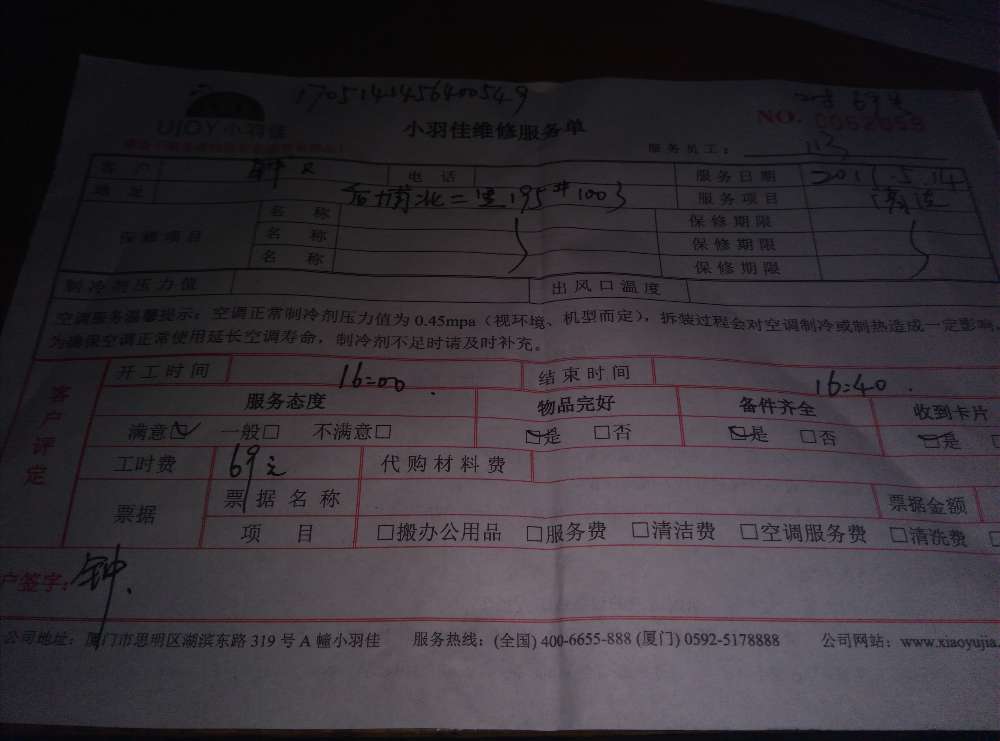 1705141456400549
UJOY小羽佳
小羽佳维修服务单
NO.
69元
服务员工:
客户 钟 电话 服务日期 .5.14
地址 北二里195#1003 服务项目 清洗
保修项目 名称 保修期限
名称 保修期限
名称 保修期限
制冷剂压力值 出风口温度
空调服务温馨提示：空调正常制冷剂压力值为0.45mpa（视环境、机型而定），拆装过程会对空调制冷或制热造成一定影响，
为确保空调正常使用延长空调寿命，制冷剂不足时请及时补充。
客户评定
开工时间 16:00 结束时间 16:40
服务态度 物品完好 备件齐全 收到卡片
满意☑ 一般□ 不满意□ ☑是 □否 ☑是 □否 ☑是
工时费 69元 代购材料费
票据 票据名称 票据金额
项目 □搬办公用品 □服务费 □清洁费 □空调服务费 □清洗费
户签字: 钟
公司地址：厦门市思明区湖滨东路319号A幢小羽佳 服务热线：(全国) 400-6655-888 (厦门) 0592-5178888 公司网站：www.xiaoyujia.